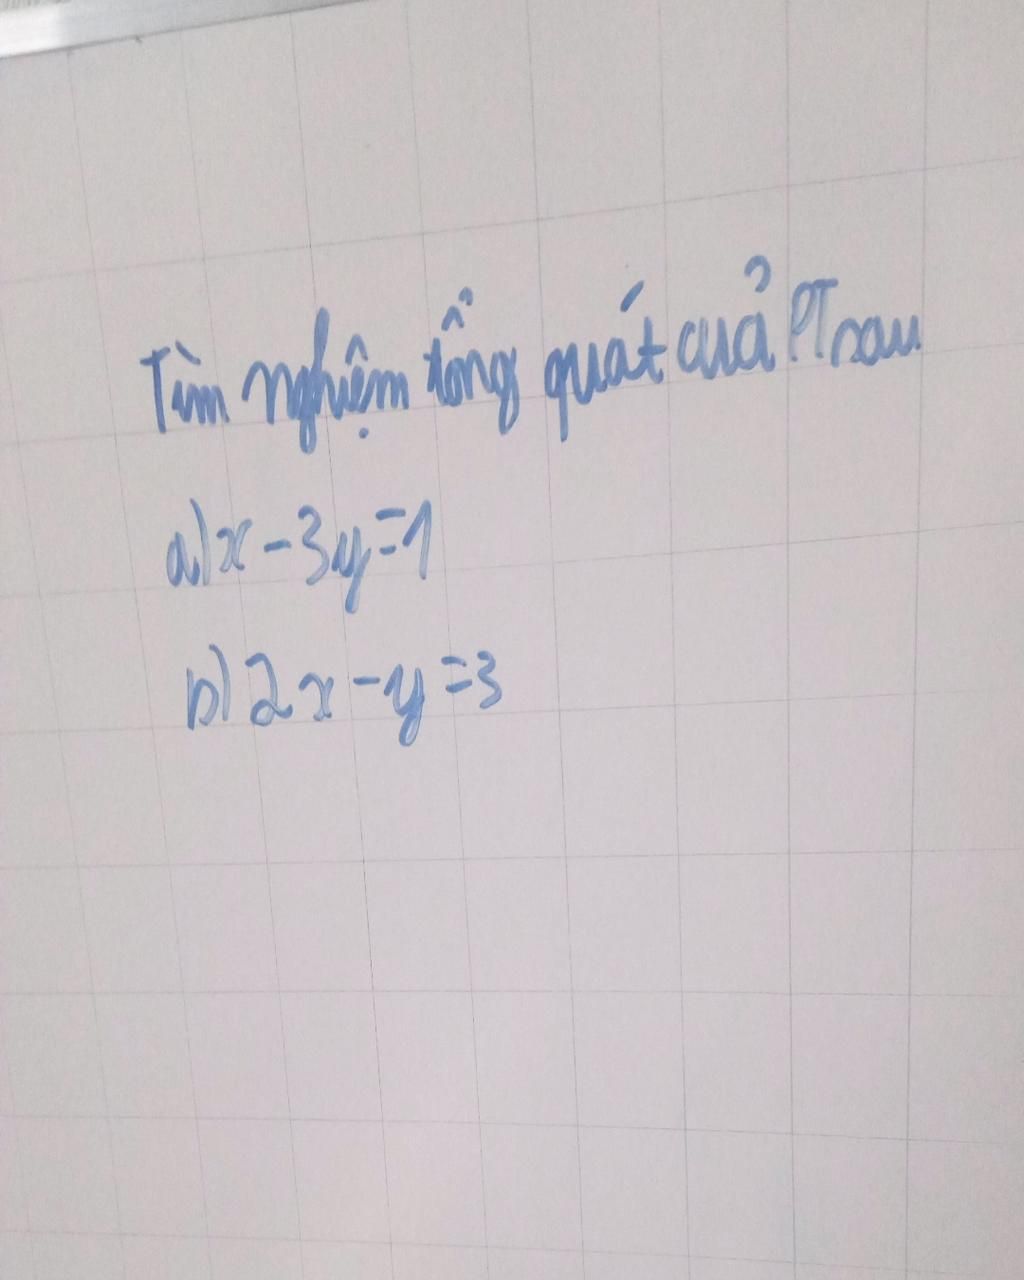 Tìm nghiệm tổng quát cuả PT sau
a) x - 3y = 1
b) 2x - y = 3